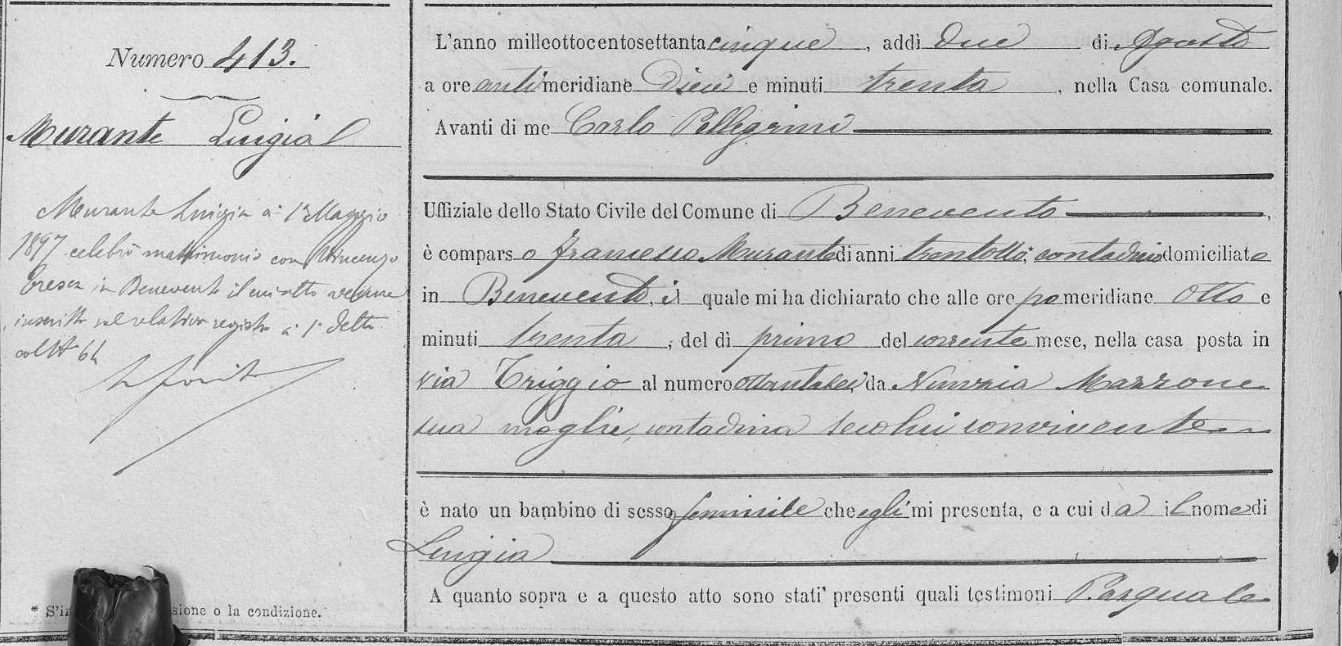 Numero 413.
Murante Luigia
Murante Luigia a 1° Maggio
1897 celebrò matrimonio con Vincenzo
in Benevento il cui atto venne
inscritto nel relativo registro a 1° detto
col N° 64
L'anno milleottocentosettantacinque, addì due di Agosto
a ore antimeridiane Dieci e minuti trenta, nella Casa comunale.
Avanti di me Carlo Pellegrini
Uffiziale dello Stato Civile del Comune di Benevento,
è comparso Francesco Murante di anni trentotto, contadino domiciliato
in Benevento, il quale mi ha dichiarato che alle ore pomeridiane Otto e
minuti trenta, del dì primo del corrente mese, nella casa posta in
via Triggio al numero da Nunzia Marrone
sua moglie, contadina seco lui convivente
è nato un bambino di sesso feminile che egli mi presenta, e a cui da il nome di
Luigia
A quanto sopra e a questo atto sono stati presenti quali testimoni Pasquale
* S'in sione o la condizione.